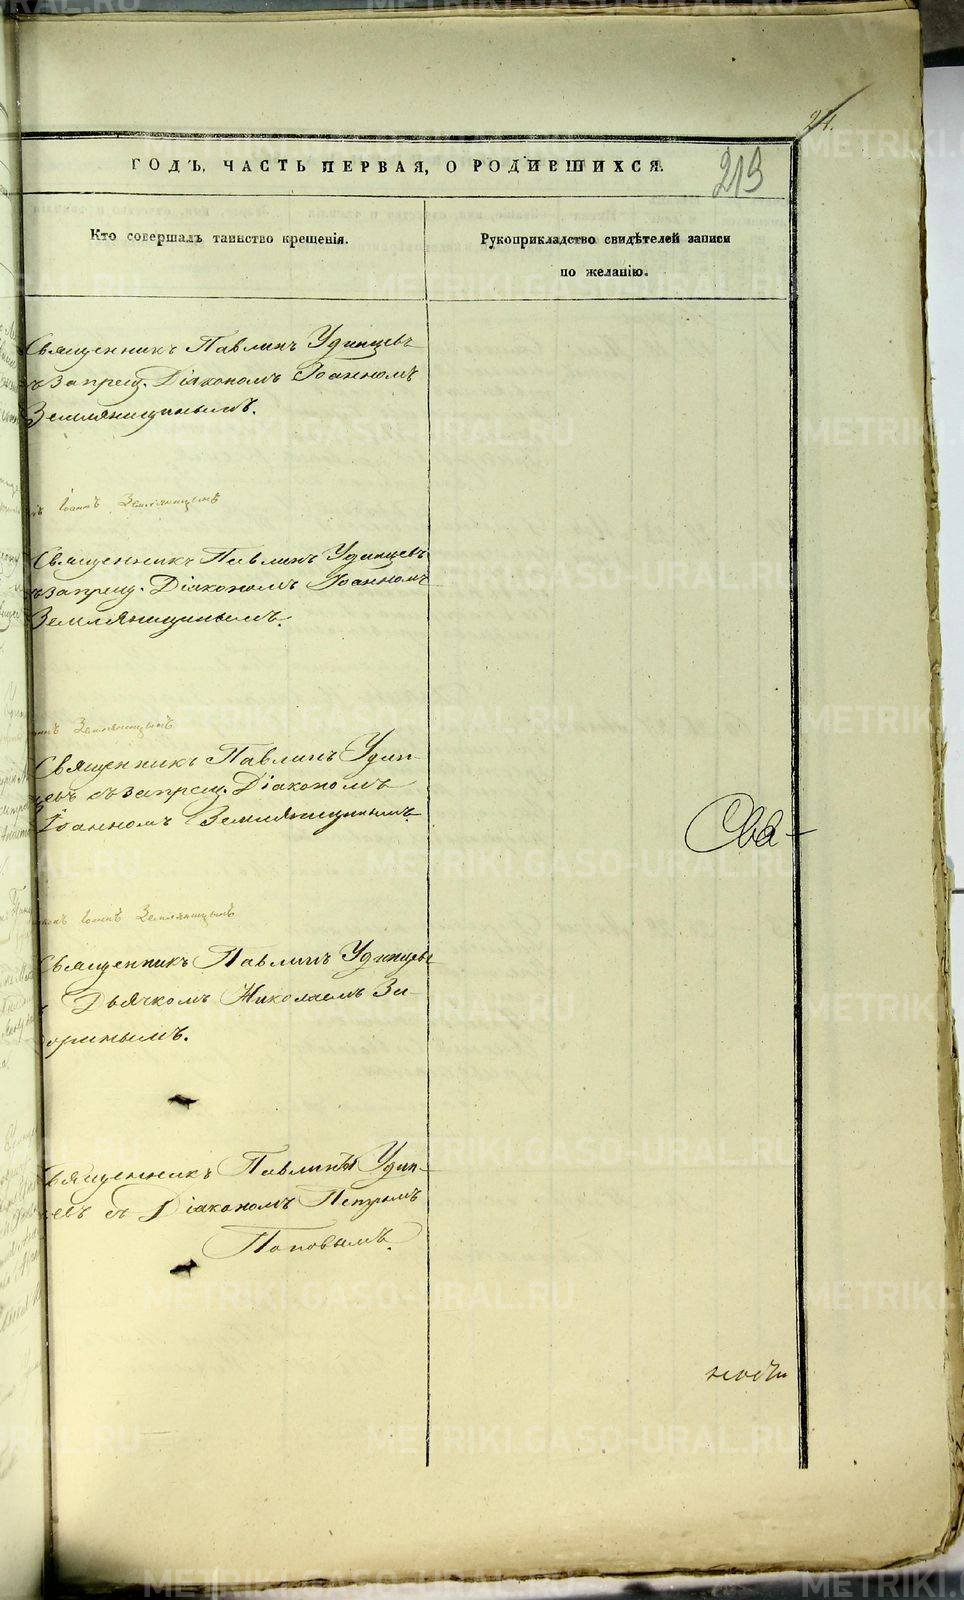 24.
ГОДЪ, ЧАСТЬ ПЕРВАЯ, О РОДИВШИХСЯ.
213
Кто совершалъ таинство крещенія.
Рукоприкладство свидѣтелей записи
по желанію.
Священникъ Павлинъ Удинцевъ
съ запрещ. Діакономъ Іоанномъ
Земляницынымъ.
Іоаннъ Земляницынъ
Священникъ Павлинъ Удинцевъ
съ запрещ. Діакономъ Іоанномъ
Земляницынымъ.
Земляницынъ
Священникъ Павлинъ Удин-
цевъ съ запрещ. Діакономъ
Іоанномъ Земляницынымъ.
Свя-
Іоаннъ Земляницынъ
Священникъ Павлинъ Удинцевъ
съ Дьячкомъ Николаемъ За-
оринымъ.
Священникъ Павлинъ Удин-
цевъ съ Діакономъ Петромъ
Поповымъ.
METRIKI.GASO-URAL.RU